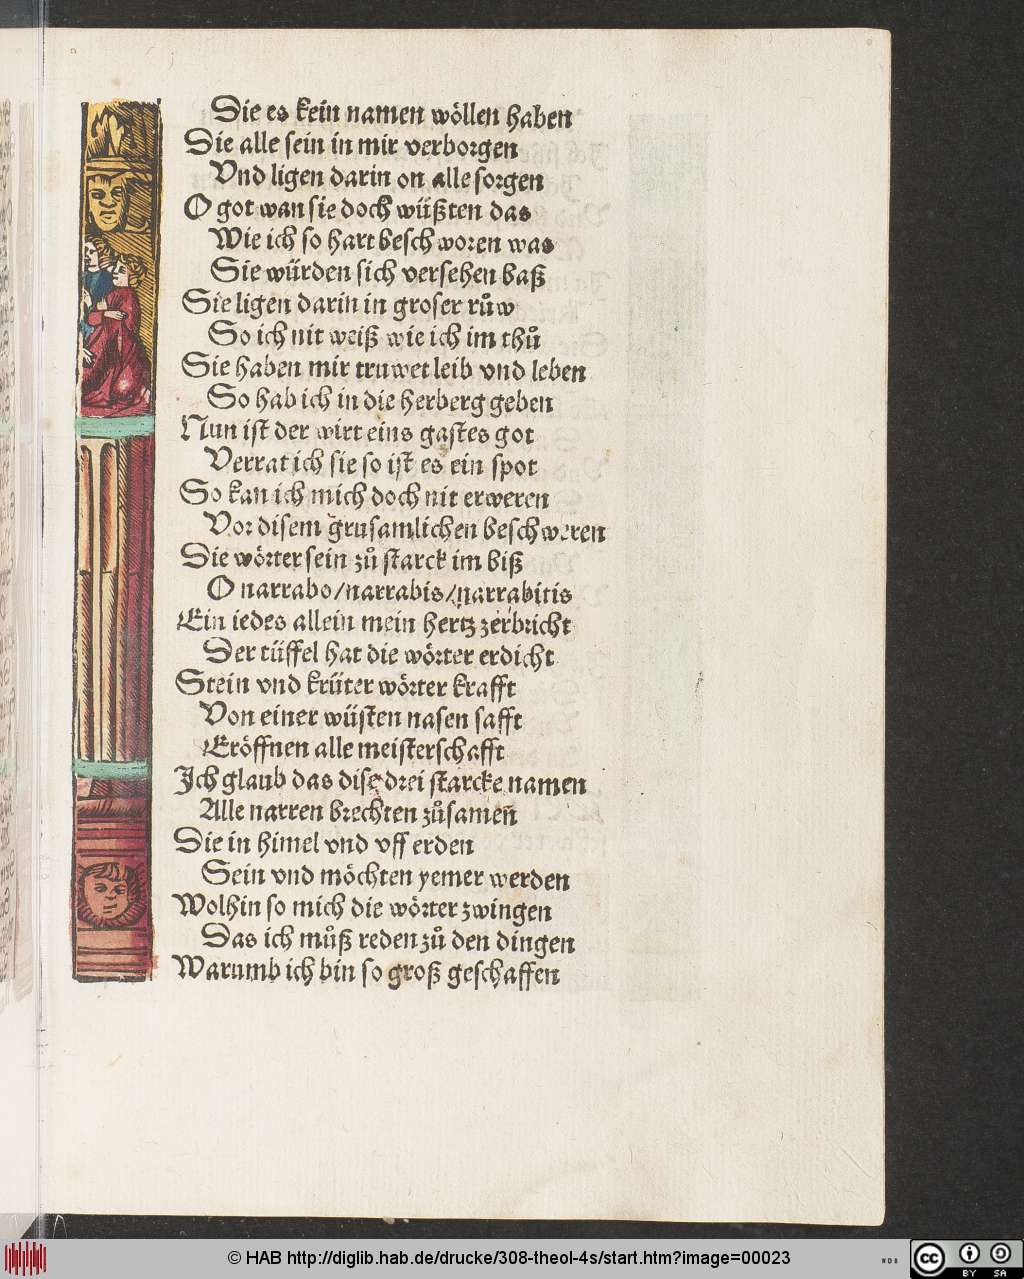 Die es kein namen wöllen haben
Die alle sein in mir verborgen
Vnd ligen darin on alle sorgen
O got wan sie doch wüßten das
Wie ich so hart beschworen was
Sie würden sich versehen baß
Sie ligen darin in groser růw
So ich nit weiß wie ich im thů
Sie haben mir truwet leib vnd leben
So hab ich in die herberg geben
Nun ist der wirt eins gastes got
Verrat ich sie so ist es ein spot
So kan ich mich doch nit erweren
Vor disem grusamlichen beschweren
Die wörter sein zů starck im biß
O narrabo/narrabis/narrabitis
Ein iedes allein mein hertz zerbricht
Der tüffel hat die wörter erdicht
Stein vnd krüter wörter krafft
Von einer wüsten nasen safft
Eröffnen alle meisterschafft
Ich glaub das dise drei starcke namen
Alle narren brechten zůsamen̄
Die in himel vnd vff erden
Sein vnd möchten yemer werden
Wolhin so mich die wörter zwingen
Das ich můß reden zů den dingen
Warumb ich bin so groß geschaffen
© HAB http://diglib.hab.de/drucke/308-theol-4s/start.htm?image=00023
WDB
cc BY SA